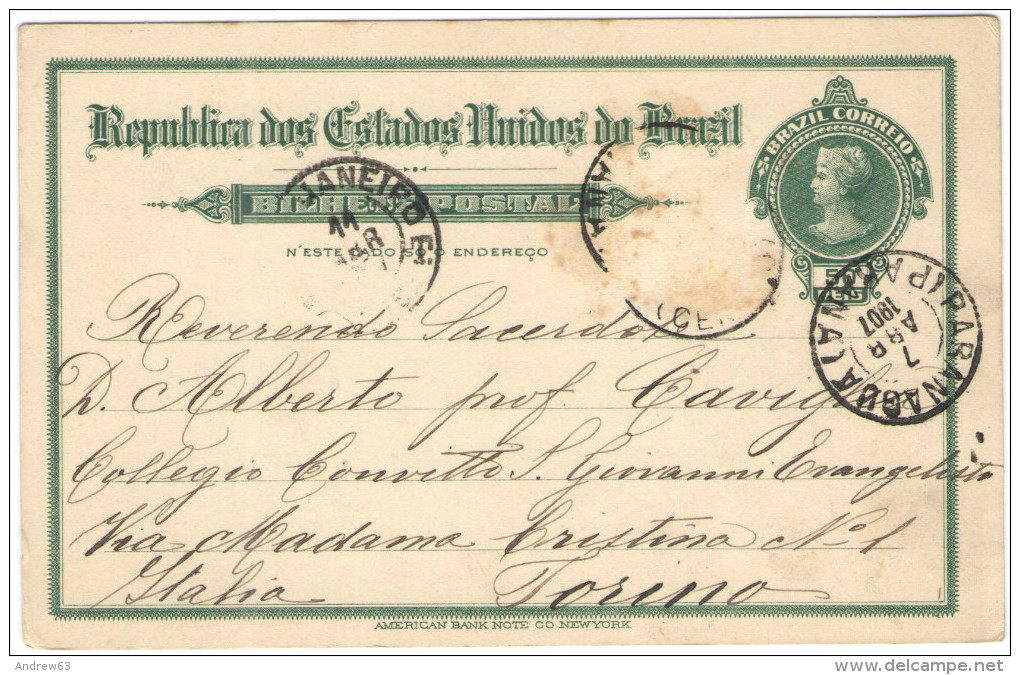 Republica dos Estados Unidos do Brazil
BRAZIL CORREIO
BILHETE POSTAL
N'ESTE LADO SÓ O ENDEREÇO
JANEIRO
11
ABR
50
REIS
PARANAGUA (PARANA)
7
ABR
1907
Reverendo Sacerdote
D. Alberto prof. Caviglia
Collegio Convitto S. Giovanni Evangelista
Via Madama Cristina No. 1
Italia Torino
AMERICAN BANK NOTE CO. NEW YORK
Andrew63
www.delcampe.net